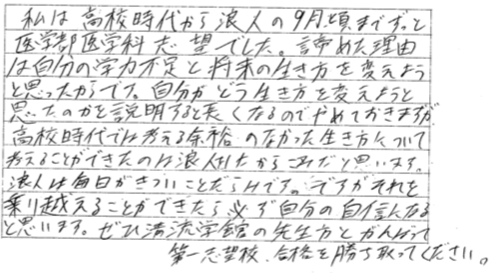 私は高校時代から浪人の9月頃までずっと
医学部医学科志望でした。諦めた理由
は自分の学力不足と将来の生き方を変えよう
と思ったからです。自分がどう生き方を変えようと
思ったのかを説明すると長くなるのでやめておきますが
高校時代では考える余裕のなかった生き方について
考えることができたのは浪人したからこそだと思います。
浪人は毎日がきついことだらけです。ですがそれを
乗り越えることができたら必ず自分の自信になる
と思います。ぜひ清流学館の先生方とがんばって
第一志望校、合格を勝ち取ってください。